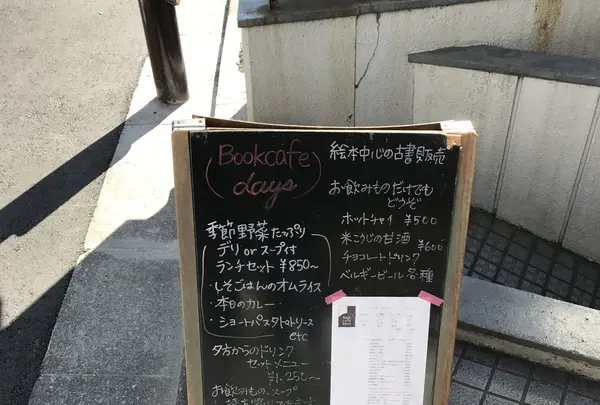 Bookcafe
days
季節野菜たっぷり
デリ or スープ付
ランチセット ¥850〜
・しそごはんのオムライス
・本日のカレー
・ショートパスタトマトソース
etc
夕方からのドリンク
セットメニュー
¥1,250〜
お飲みもの・スープ
絵本中心の古書販売
お飲みものだけでも
どうぞ
ホットチャイ ¥500
米こうじの甘酒 ¥600
チョコレートドリンク
ベルギービール各種